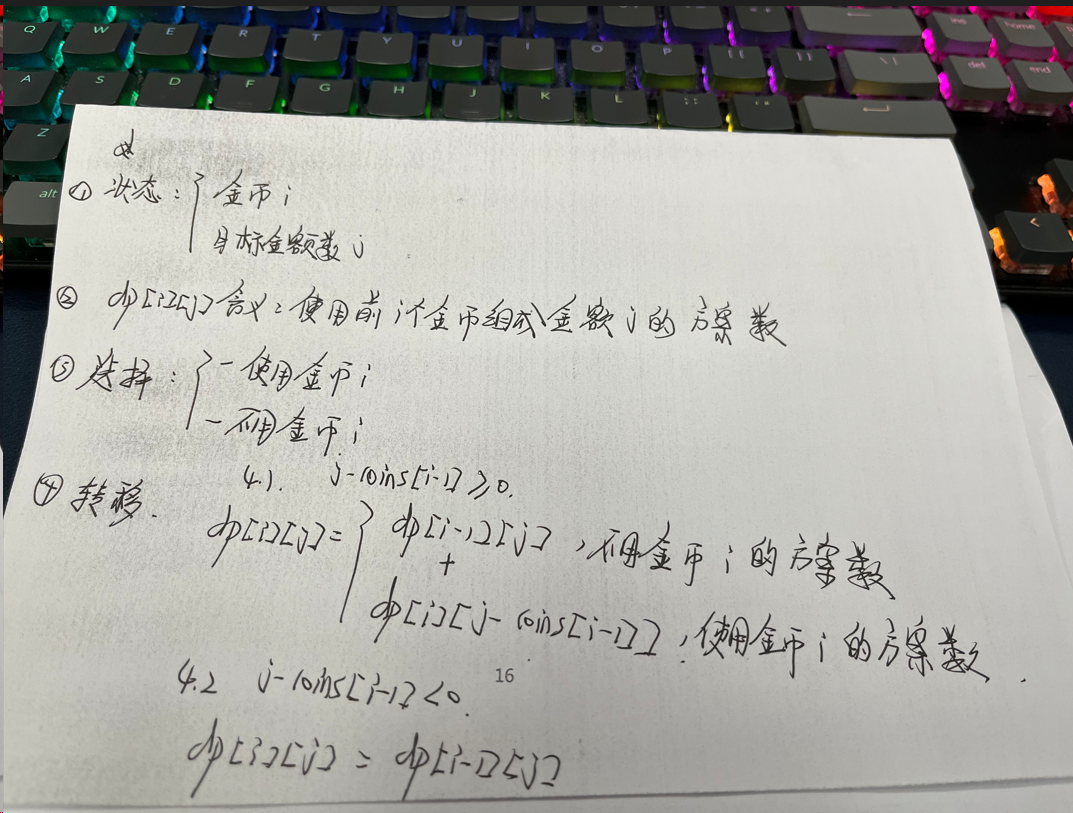 Q W E R T Y U I O P [ ] \ | ins home
A S D F G H J K L del end
Z
alt
① 状态：金币 i
目标金额数 j
② dp[i][j]含义：使用前i个金币组成金额j的方案数
③ 选择：一使用金币 i
一不用金币 i
4.1. j-coins[i-1]≥0.
④ 转移.
dp[i][j]= dp[i-1][j]，不用金币i的方案数
+
dp[i][j-coins[i-1]]，使用金币i的方案数.
16
4.2 j-coins[i-1]<0.
dp[i][j] = dp[i-1][j]